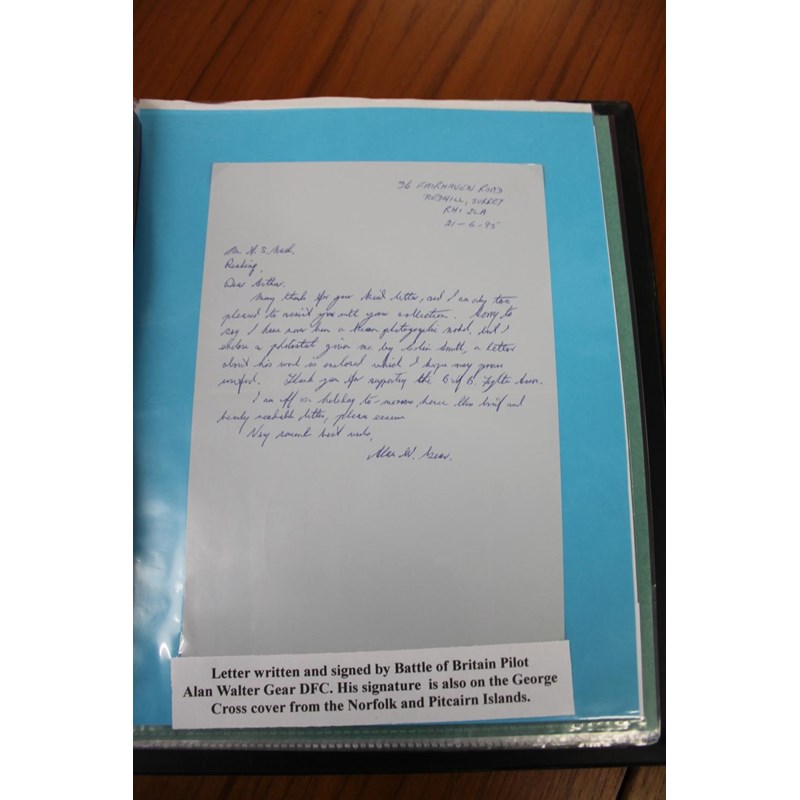 36 FAIRHAVEN ROAD
REDHILL, SURREY
RH1 2LA
21-6-95
Mr. A. S.
Reading,
Dear Arthur.
Many thanks for your kind letter, and I am only too
pleased to assist you with your collection. Sorry to
say I have never been a keen photographic model, but I
enclose a photostat given me by Colin Smith, a letter
about his work is enclosed which I hope may prove
useful. Thank you for supporting the B of B. Fighter Assn.
I am off on holiday to-morrow hence this brief and
barely readable letter, please excuse
Very sincere best wishes,
Alan W. Gear.
Letter written and signed by Battle of Britain Pilot
Alan Walter Gear DFC. His signature is also on the George
Cross cover from the Norfolk and Pitcairn Islands.